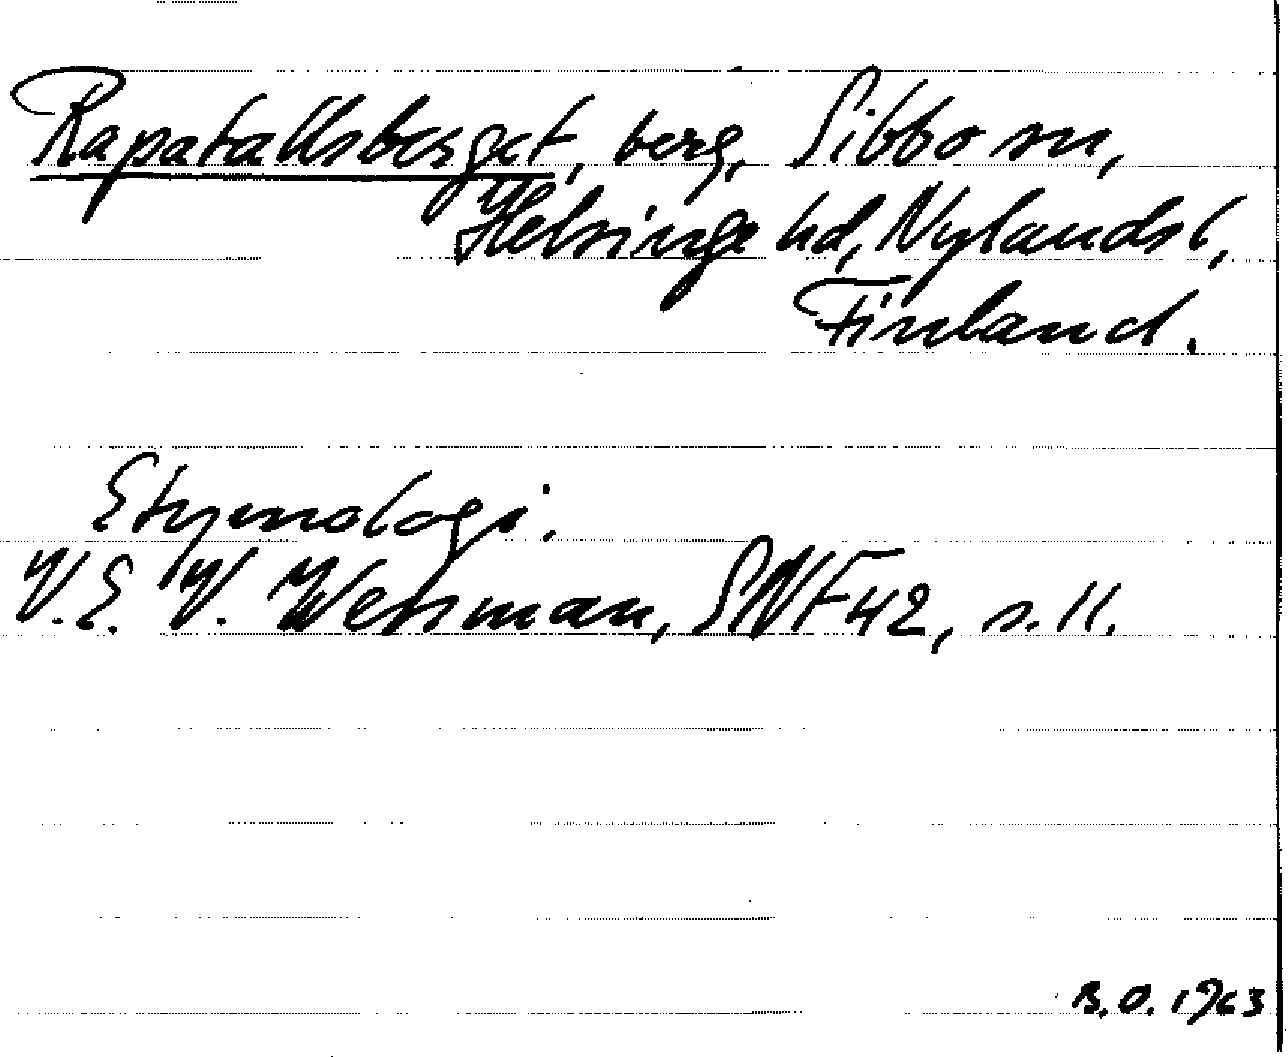 Rapatallsberget, berg, Sibbo sn,
Helsinge hd, Nylands l,
Finland.
Etymologi.
V. E. V. Wessman, SNF 42, s. 11.
B. O. 1963